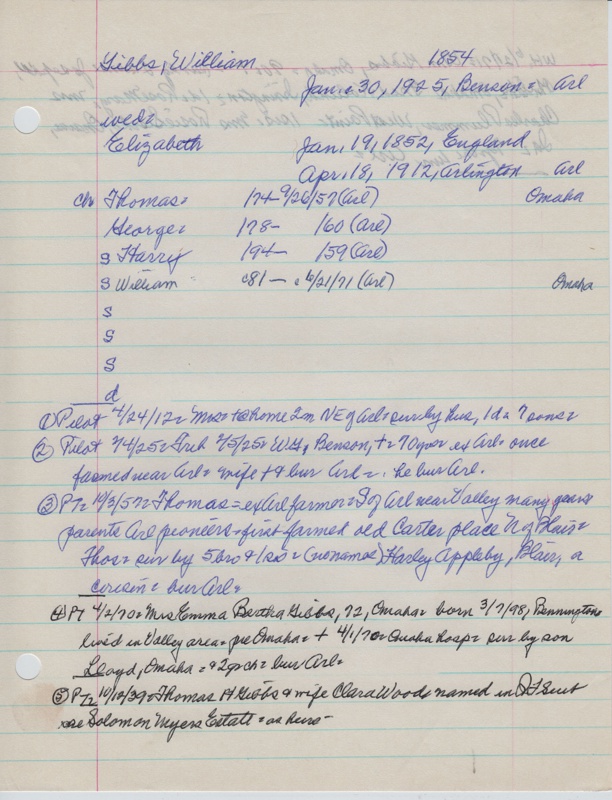 Gibbs, William 1854
Jan. 30, 1925, Benson= Arl
wed=
Elizabeth Jan. 19, 1852, England
Apr. 18, 1912, Arlington Arl
ch Thomas= 174- 9/26/57 (Arl) Omaha
George= 178- 160 (Arl)
s Harry 194- 159 (Arl)
s William c81 - 6/21/71 (Arl) Omaha
s
s
s
d
① Pilot 4/24/12= Mrs= + @ home 2m NE of Arl= sur by hus, 1d = 7 sons=
② Pilot 2/5/25= W, Benson, += 70 yrs= ex Arl= once
farmed near Arl= wife + & bur Arl=. he bur Arl.
③ PT= 10/3/57= Thomas= ex Arl farmer= S of Arl near Valley many years
parents Arl pioneers= first farmed old Carter place N of Blair=
Thos= sur by 5 bro & 1 sis= (no name) Harley Appleby, Blair, a
cousin= bur Arl=
④ PT 4/2/70= Mrs Emma Bertha Gibbs, 72, Omaha= born 3/7/98, Bennington
lived in Valley area= pre Omaha= + 4/1/70= Omaha hosp= sur by son
Lloyd, Omaha= & 2 grch= bur Arl=
⑤ PT= 10/12/39= Thomas H Gibbs & wife Clara Woods named in suit
re Solomon Myers Estate= as heirs-